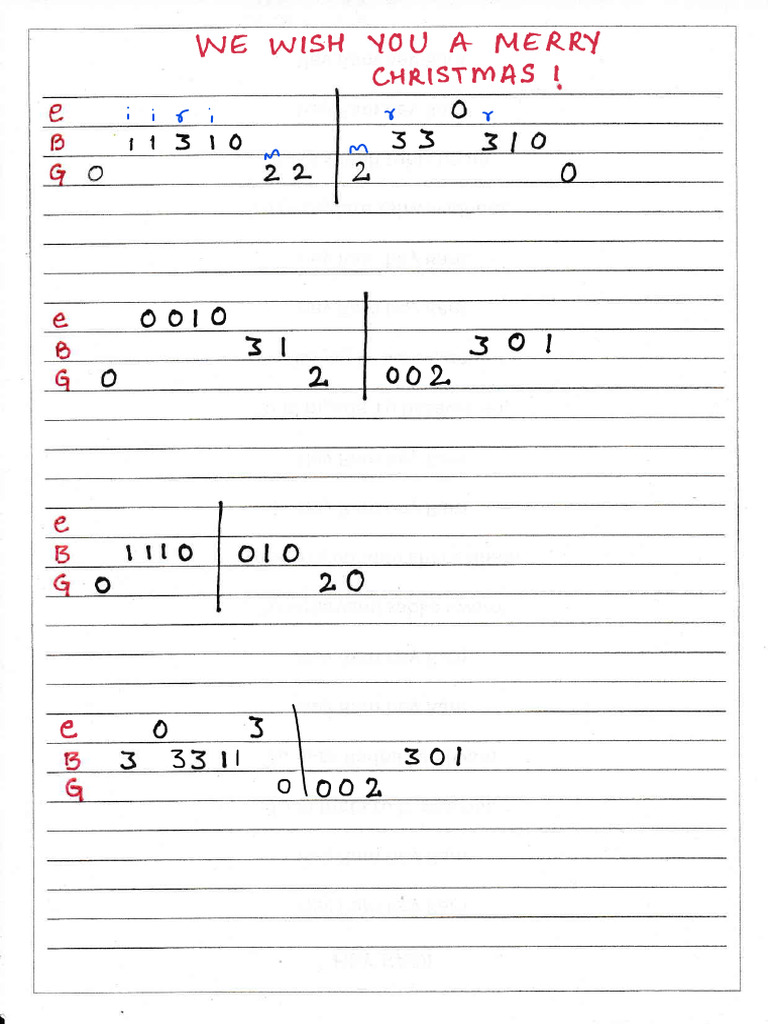 WE WISH YOU A MERRY
CHRISTMAS!
i i r i r r
e 0
B 1 1 3 1 0 3 3 3 1 0
m m
G 0 2 2 2 0
e 0 0 1 0
B 3 1 3 0 1
G 0 2 0 0 2
e
B 1 1 1 0 0 1 0
G 0 2 0
e 0 3
B 3 3 3 1 1 3 0 1
G 0 0 0 2